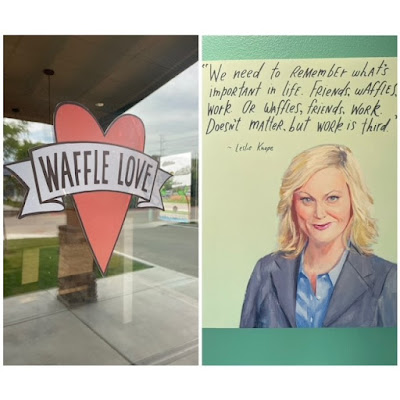 WAFFLE LOVE
"We need to RemembeR what's
important in life. Friends, waffles,
work. OR waffles, friends, work.
Doesn't matteR, but woRk is third."
- Leslie Knope